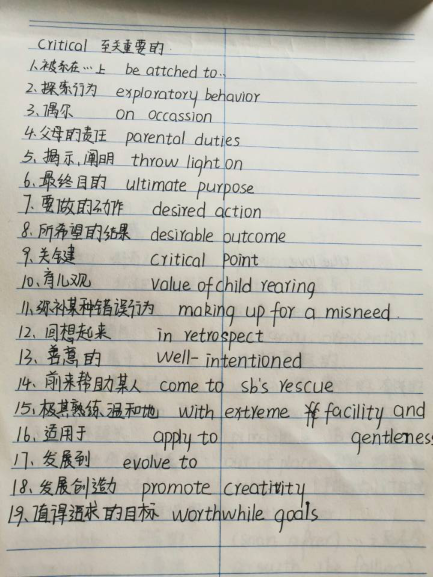 Critical 至关重要的
1.被系在…上 be attched to..
2.探索行为 exploratory behavior
3.偶尔 on occassion
4.父母的责任 parental duties
5.揭示,阐明 throw light on
6.最终目的 ultimate purpose
7.要做的动作 desired action
8.所希望的结果 desirable outcome
9.关键 critical point
10.育儿观 value of child rearing
11.弥补某种错误行为 making up for a misneed.
12.回想起来 in retrospect
13.善意的 well-intentioned
14.前来帮助某人 come to sb's rescue
15.极其熟练、温和地 with extreme facility and
16.适用于 apply to gentleness
17.发展到 evolve to
18.发展创造力 promote creativity
19.值得追求的目标 worthwhile goals